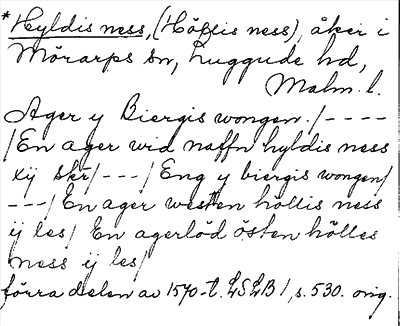 *Hyldis ness, (Höllis ness), åker i
Mörarps sn, Luggude hd,
Malm. l.
Ager y Biergis wongen. /----
/En ager wid naffn hyldis ness
xij skr/---/ Eng y biergis wongen/
---/ En ager westen höllis ness
ij les/ En agerlöd östen hölles
ness ij les/
förra delen av 1570-t. LSLB 1, s. 530. orig.